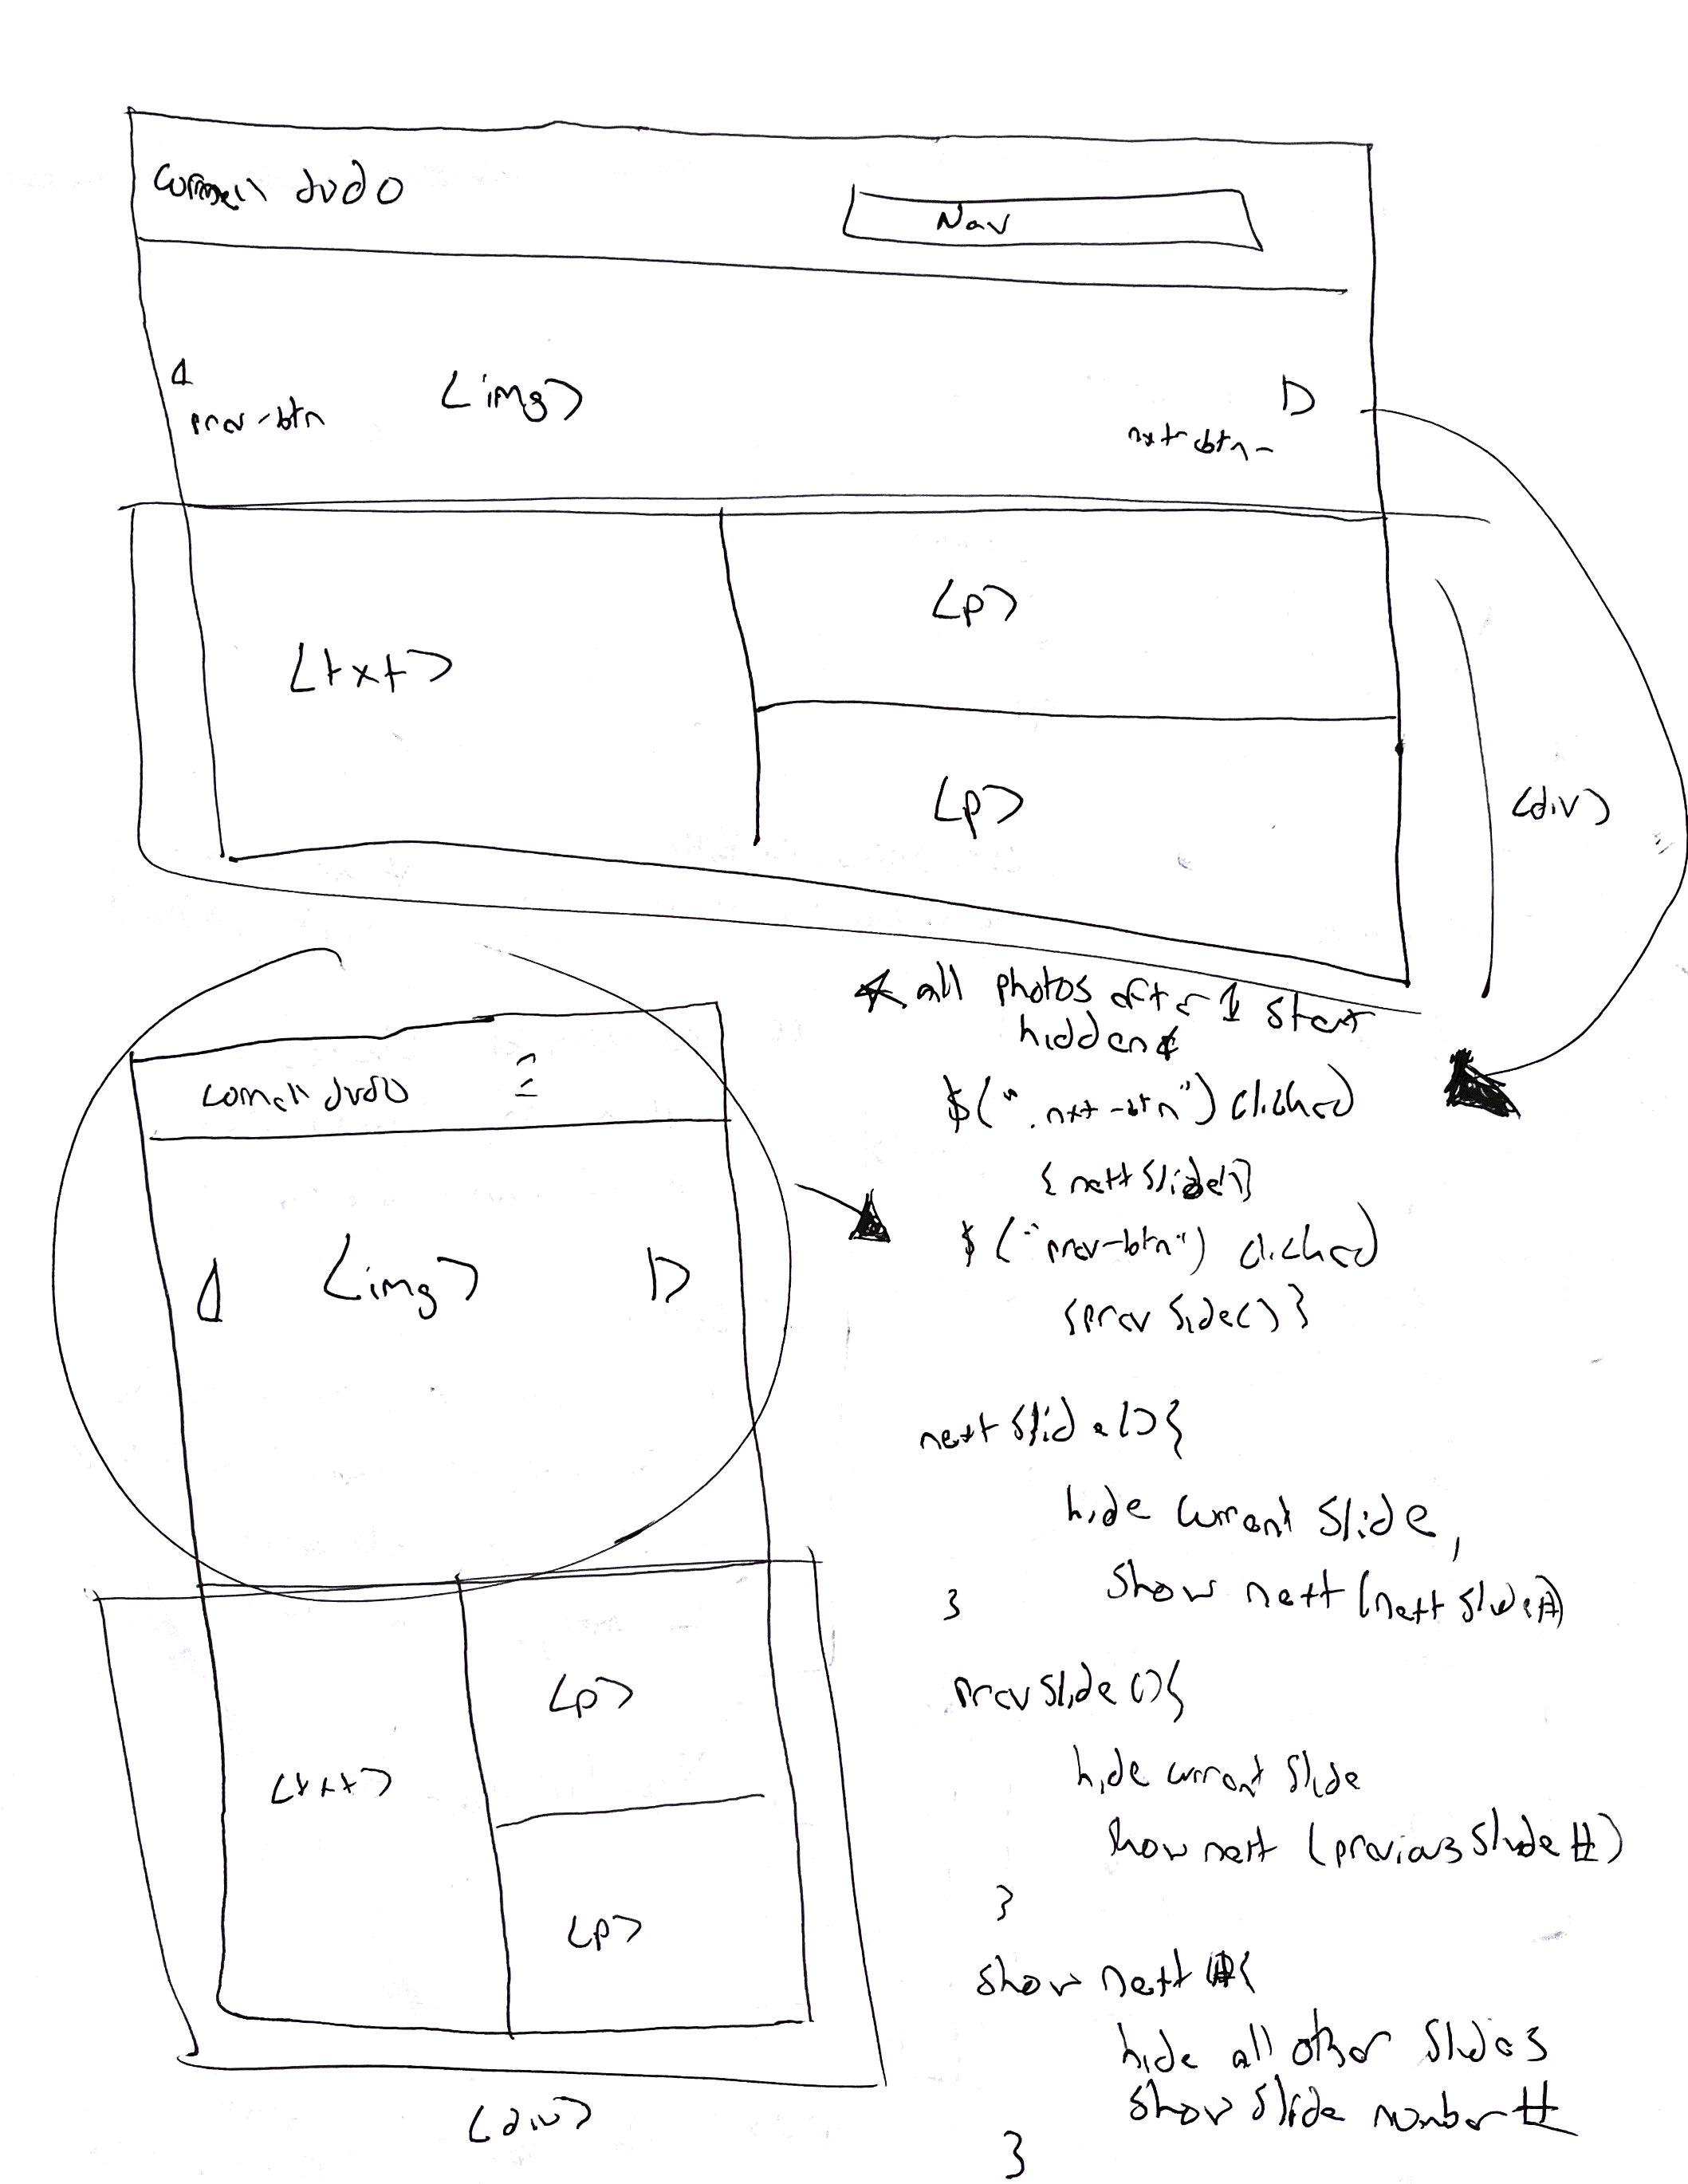 Cornell Judo
Nav
<img>
prev-btn
nxt-btn-
<txt>
<p>
<p>
<div>
* all photos after 1 start
hidden *
$(".nxt-btn") clicked
{nextSlide()}
$("prev-btn") clicked
{prevSlide()}
nextSlide(){
hide current slide,
show next (next slide #)
}
prevSlide(){
hide current slide
show next (previous slide #)
}
show next #{
hide all other slides
show slide number #
}
Cornell Judo
<img>
<txt>
<p>
<p>
<div>